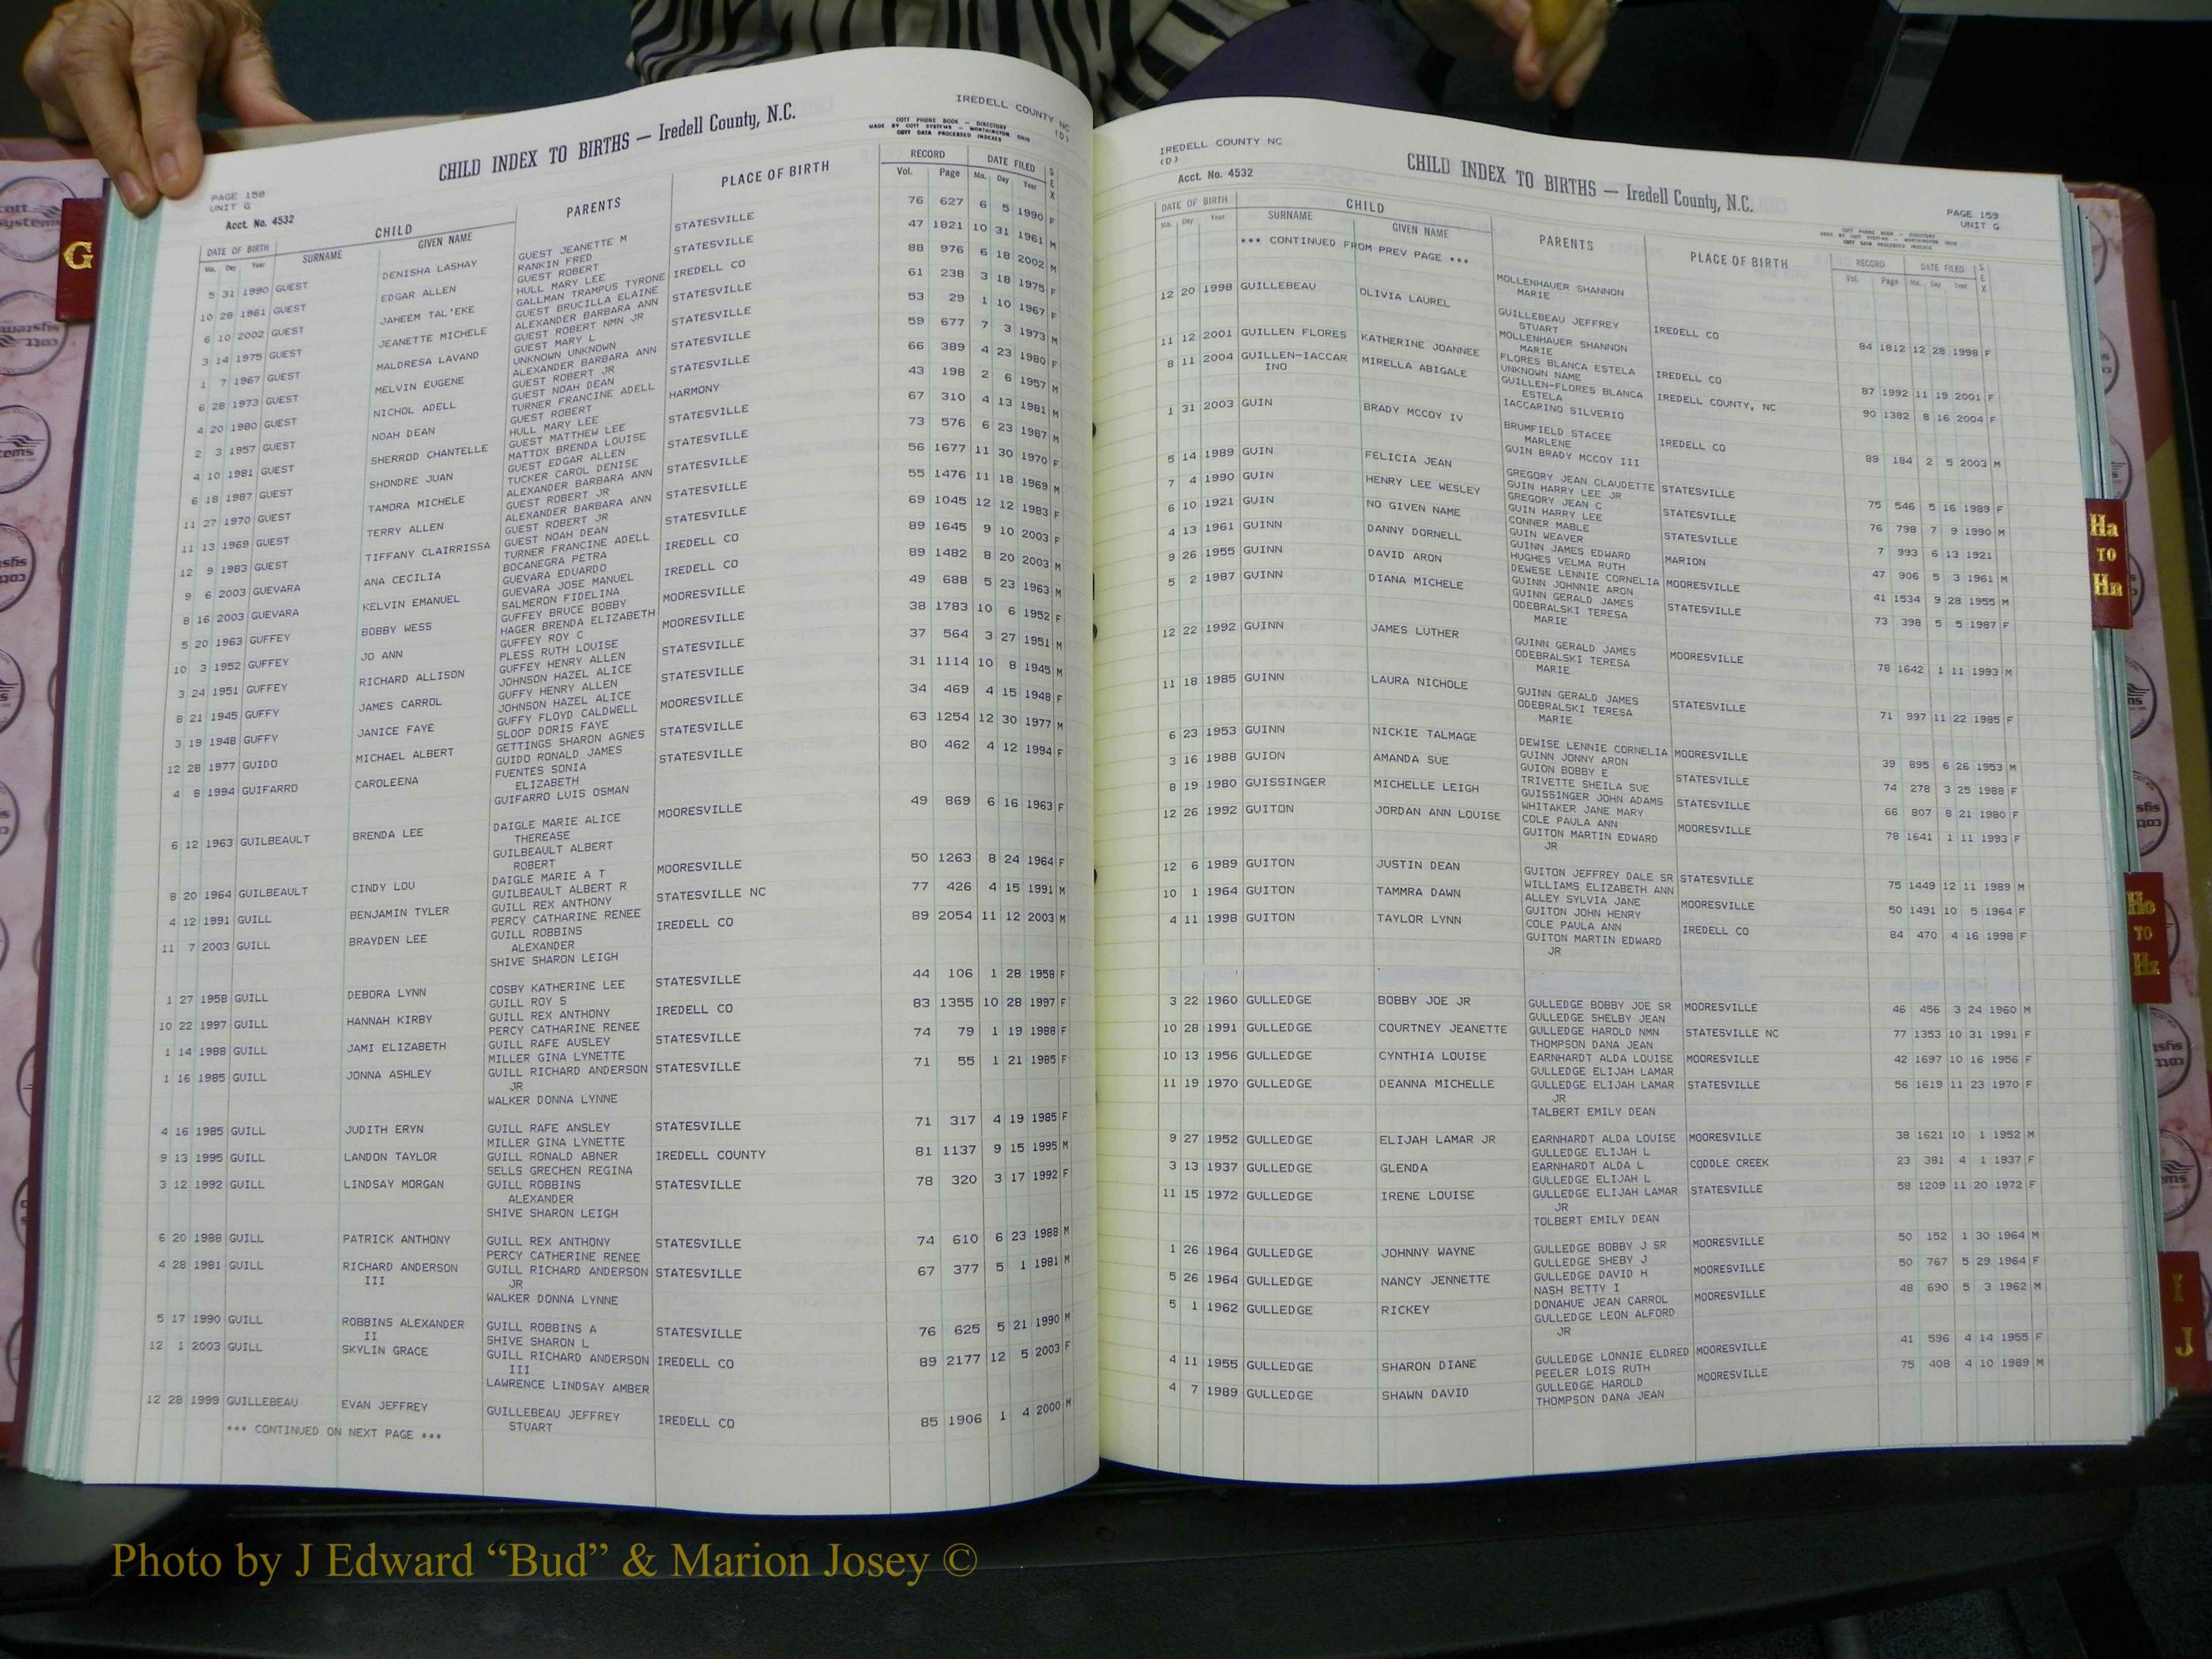 IREDELL COUNTY NC
(D)
CHILD INDEX TO BIRTHS — Iredell County, N.C.
COTT PHONE BOOK — DIRECTORY
MADE BY COTT SYSTEMS — WORTHINGTON, OHIO
COTT DATA PROCESSED INDEXES
PAGE 158
UNIT G
Acct. No. 4532
DATE OF BIRTH CHILD PARENTS PLACE OF BIRTH RECORD DATE FILED SEX
Mo. Day Year SURNAME GIVEN NAME Vol. Page Mo. Day Year
5 31 1990 GUEST DENISHA LASHAY GUEST JEANETTE M STATESVILLE 76 627 6 5 1990 F
RANKIN FRED
10 28 1961 GUEST EDGAR ALLEN GUEST ROBERT STATESVILLE 47 1821 10 31 1961 M
HULL MARY LEE
6 10 2002 GUEST JAHEEM TAL'EKE GALLMAN TRAMPUS TYRONE IREDELL CO 88 976 6 18 2002 M
GUEST BRUCILLA ELAINE
3 14 1975 GUEST JEANETTE MICHELE ALEXANDER BARBARA ANN STATESVILLE 61 238 3 18 1975 F
GUEST ROBERT NMN JR
1 7 1967 GUEST MALDRESA LAVAND GUEST MARY L STATESVILLE 53 29 1 10 1967 F
UNKNOWN UNKNOWN
6 28 1973 GUEST MELVIN EUGENE ALEXANDER BARBARA ANN STATESVILLE 59 677 7 3 1973 M
GUEST ROBERT JR
4 20 1980 GUEST NICHOL ADELL GUEST NOAH DEAN STATESVILLE 66 389 4 23 1980 F
TURNER FRANCINE ADELL
2 3 1957 GUEST NOAH DEAN GUEST ROBERT HARMONY 43 198 2 6 1957 M
HULL MARY LEE
4 10 1981 GUEST SHERROD CHANTELLE GUEST MATTHEW LEE STATESVILLE 67 310 4 13 1981 M
MATTOX BRENDA LOUISE
6 18 1987 GUEST SHONDRE JUAN GUEST EDGAR ALLEN STATESVILLE 73 576 6 23 1987 M
TUCKER CAROL DENISE
11 27 1970 GUEST TAMORA MICHELE ALEXANDER BARBARA ANN STATESVILLE 56 1677 11 30 1970 F
GUEST ROBERT JR
11 13 1969 GUEST TERRY ALLEN ALEXANDER BARBARA ANN STATESVILLE 55 1476 11 18 1969 M
GUEST ROBERT JR
12 9 1983 GUEST TIFFANY CLAIRRISSA GUEST NOAH DEAN STATESVILLE 69 1045 12 12 1983 F
TURNER FRANCINE ADELL
9 6 2003 GUEVARA ANA CECILIA BOCANEGRA PETRA IREDELL CO 89 1645 9 10 2003 F
GUEVARA EDUARDO
8 16 2003 GUEVARA KELVIN EMANUEL GUEVARA JOSE MANUEL IREDELL CO 89 1482 8 20 2003 M
SALMERON FIDELINA
5 20 1963 GUFFEY BOBBY WESS GUFFEY BRUCE BOBBY MOORESVILLE 49 688 5 23 1963 M
HAGER BRENDA ELIZABETH
10 3 1952 GUFFEY JO ANN GUFFEY ROY C MOORESVILLE 38 1783 10 6 1952 F
PLESS RUTH LOUISE
3 24 1951 GUFFEY RICHARD ALLISON GUFFEY HENRY ALLEN STATESVILLE 37 564 3 27 1951 M
JOHNSON HAZEL ALICE
8 21 1945 GUFFY JAMES CARROL GUFFY HENRY ALLEN STATESVILLE 31 1114 10 8 1945 M
JOHNSON HAZEL ALICE
3 19 1948 GUFFY JANICE FAYE GUFFY FLOYD CALDWELL MOORESVILLE 34 469 4 15 1948 F
SLOOP DORIS FAYE
12 28 1977 GUIDO MICHAEL ALBERT GETTINGS SHARON AGNES STATESVILLE 63 1254 12 30 1977 M
GUIDO RONALD JAMES
4 8 1994 GUIFARRO CAROLEENA FUENTES SONIA STATESVILLE 80 462 4 12 1994 F
ELIZABETH
GUIFARRO LUIS OSMAN
6 12 1963 GUILBEAULT BRENDA LEE DAIGLE MARIE ALICE MOORESVILLE 49 869 6 16 1963 F
THEREASE
GUILBEAULT ALBERT
ROBERT
8 20 1964 GUILBEAULT CINDY LOU DAIGLE MARIE A T MOORESVILLE 50 1263 8 24 1964 F
GUILBEAULT ALBERT R
4 12 1991 GUILL BENJAMIN TYLER GUILL REX ANTHONY STATESVILLE NC 77 426 4 15 1991 M
PERCY CATHARINE RENEE
11 7 2003 GUILL BRAYDEN LEE GUILL ROBBINS IREDELL CO 89 2054 11 12 2003 M
ALEXANDER
SHIVE SHARON LEIGH
1 27 1958 GUILL DEBORA LYNN COSBY KATHERINE LEE STATESVILLE 44 106 1 28 1958 F
GUILL ROY S
10 22 1997 GUILL HANNAH KIRBY GUILL REX ANTHONY IREDELL CO 83 1355 10 28 1997 F
PERCY CATHARINE RENEE
1 14 1988 GUILL JAMI ELIZABETH GUILL RAFE AUSLEY STATESVILLE 74 79 1 19 1988 F
MILLER GINA LYNETTE
1 16 1985 GUILL JONNA ASHLEY GUILL RICHARD ANDERSON STATESVILLE 71 55 1 21 1985 F
JR
WALKER DONNA LYNNE
4 16 1985 GUILL JUDITH ERYN GUILL RAFE ANSLEY STATESVILLE 71 317 4 19 1985 F
MILLER GINA LYNETTE
9 13 1995 GUILL LANDON TAYLOR GUILL RONALD ABNER IREDELL COUNTY 81 1137 9 15 1995 M
SELLS GRECHEN REGINA
3 12 1992 GUILL LINDSAY MORGAN GUILL ROBBINS STATESVILLE 78 320 3 17 1992 F
ALEXANDER
SHIVE SHARON LEIGH
6 20 1988 GUILL PATRICK ANTHONY GUILL REX ANTHONY STATESVILLE 74 610 6 23 1988 M
PERCY CATHERINE RENEE
4 28 1981 GUILL RICHARD ANDERSON GUILL RICHARD ANDERSON STATESVILLE 67 377 5 1 1981 M
III JR
WALKER DONNA LYNNE
5 17 1990 GUILL ROBBINS ALEXANDER GUILL ROBBINS A STATESVILLE 76 625 5 21 1990 M
II SHIVE SHARON L
12 1 2003 GUILL SKYLIN GRACE GUILL RICHARD ANDERSON IREDELL CO 89 2177 12 5 2003 F
III
LAWRENCE LINDSAY AMBER
12 28 1999 GUILLEBEAU EVAN JEFFREY GUILLEBEAU JEFFREY IREDELL CO 85 1906 1 4 2000 M
STUART
*** CONTINUED ON NEXT PAGE ***
IREDELL COUNTY NC
(D)
Acct. No. 4532
CHILD INDEX TO BIRTHS — Iredell County, N.C.
PAGE 159
UNIT G
COTT PHONE BOOK — DIRECTORY
MADE BY COTT SYSTEMS — WORTHINGTON, OHIO
COTT DATA PROCESSED INDEXES
DATE OF BIRTH CHILD PARENTS PLACE OF BIRTH RECORD DATE FILED SEX
Mo. Day Year SURNAME GIVEN NAME Vol. Page Mo. Day Year
*** CONTINUED FROM PREV PAGE ***
MOLLENHAUER SHANNON
MARIE
12 20 1998 GUILLEBEAU OLIVIA LAUREL GUILLEBEAU JEFFREY IREDELL CO 84 1812 12 28 1998 F
STUART
MOLLENHAUER SHANNON
MARIE
11 12 2001 GUILLEN FLORES KATHERINE JOANNEE FLORES BLANCA ESTELA IREDELL CO 87 1992 11 19 2001 F
UNKNOWN NAME
8 11 2004 GUILLEN-IACCAR MIRELLA ABIGALE GUILLEN-FLORES BLANCA IREDELL COUNTY, NC 90 1382 8 16 2004 F
INO ESTELA
IACCARINO SILVERIO
1 31 2003 GUIN BRADY MCCOY IV BRUMFIELD STACEE IREDELL CO 89 184 2 5 2003 M
MARLENE
GUIN BRADY MCCOY III
5 14 1989 GUIN FELICIA JEAN GREGORY JEAN CLAUDETTE STATESVILLE 75 546 5 16 1989 F
GUIN HARRY LEE JR
7 4 1990 GUIN HENRY LEE WESLEY GREGORY JEAN C STATESVILLE 76 798 7 9 1990 M
GUIN HARRY LEE
6 10 1921 GUIN NO GIVEN NAME CONNER MABLE STATESVILLE 7 993 6 13 1921
GUIN WEAVER
4 13 1961 GUINN DANNY DORNELL GUINN JAMES EDWARD MARION 47 906 5 3 1961 M
HUGHES VELMA RUTH
9 26 1955 GUINN DAVID ARON DEWESE LENNIE CORNELIA MOORESVILLE 41 1534 9 28 1955 M
GUINN JOHNNIE ARON
5 2 1987 GUINN DIANA MICHELE GUINN GERALD JAMES STATESVILLE 73 398 5 5 1987 F
ODEBRALSKI TERESA
MARIE
12 22 1992 GUINN JAMES LUTHER GUINN GERALD JAMES MOORESVILLE 78 1642 1 11 1993 M
ODEBRALSKI TERESA
MARIE
11 18 1985 GUINN LAURA NICHOLE GUINN GERALD JAMES STATESVILLE 71 997 11 22 1985 F
ODEBRALSKI TERESA
MARIE
6 23 1953 GUINN NICKIE TALMAGE DEWISE LENNIE CORNELIA MOORESVILLE 39 895 6 26 1953 M
GUINN JONNY ARON
3 16 1988 GUION AMANDA SUE GUION BOBBY E STATESVILLE 74 278 3 25 1988 F
TRIVETTE SHEILA SUE
8 19 1980 GUISSINGER MICHELLE LEIGH GUISSINGER JOHN ADAMS STATESVILLE 66 807 8 21 1980 F
WHITAKER JANE MARY
12 26 1992 GUITON JORDAN ANN LOUISE COLE PAULA ANN MOORESVILLE 78 1641 1 11 1993 F
GUITON MARTIN EDWARD
JR
12 6 1989 GUITON JUSTIN DEAN GUITON JEFFREY DALE SR STATESVILLE 75 1449 12 11 1989 M
WILLIAMS ELIZABETH ANN
10 1 1964 GUITON TAMMRA DAWN ALLEY SYLVIA JANE MOORESVILLE 50 1491 10 5 1964 F
GUITON JOHN HENRY
4 11 1998 GUITON TAYLOR LYNN COLE PAULA ANN IREDELL CO 84 470 4 16 1998 F
GUITON MARTIN EDWARD
JR
3 22 1960 GULLEDGE BOBBY JOE JR GULLEDGE BOBBY JOE SR MOORESVILLE 46 456 3 24 1960 M
GULLEDGE SHELBY JEAN
10 28 1991 GULLEDGE COURTNEY JEANETTE GULLEDGE HAROLD NMN STATESVILLE NC 77 1353 10 31 1991 F
THOMPSON DANA JEAN
10 13 1956 GULLEDGE CYNTHIA LOUISE EARNHARDT ALDA LOUISE MOORESVILLE 42 1697 10 16 1956 F
GULLEDGE ELIJAH LAMAR
11 19 1970 GULLEDGE DEANNA MICHELLE GULLEDGE ELIJAH LAMAR STATESVILLE 56 1619 11 23 1970 F
JR
TALBERT EMILY DEAN
9 27 1952 GULLEDGE ELIJAH LAMAR JR EARNHARDT ALDA LOUISE MOORESVILLE 38 1621 10 1 1952 M
GULLEDGE ELIJAH L
3 13 1937 GULLEDGE GLENDA EARNHARDT ALDA L CODDLE CREEK 23 381 4 1 1937 F
GULLEDGE ELIJAH L
11 15 1972 GULLEDGE IRENE LOUISE GULLEDGE ELIJAH LAMAR STATESVILLE 58 1209 11 20 1972 F
JR
TOLBERT EMILY DEAN
1 26 1964 GULLEDGE JOHNNY WAYNE GULLEDGE BOBBY J SR MOORESVILLE 50 152 1 30 1964 M
GULLEDGE SHEBY J
5 26 1964 GULLEDGE NANCY JENNETTE GULLEDGE DAVID H MOORESVILLE 50 767 5 29 1964 F
NASH BETTY I
5 1 1962 GULLEDGE RICKEY DONAHUE JEAN CARROL MOORESVILLE 48 690 5 3 1962 M
GULLEDGE LEON ALFORD
JR
4 11 1955 GULLEDGE SHARON DIANE GULLEDGE LONNIE ELDRED MOORESVILLE 41 596 4 14 1955 F
PEELER LOIS RUTH
4 7 1989 GULLEDGE SHAWN DAVID GULLEDGE HAROLD MOORESVILLE 75 408 4 10 1989 M
THOMPSON DANA JEAN
G
Ha
TO
Hn
Ho
TO
Hz
I
J
Photo by J Edward “Bud” & Marion Josey ©